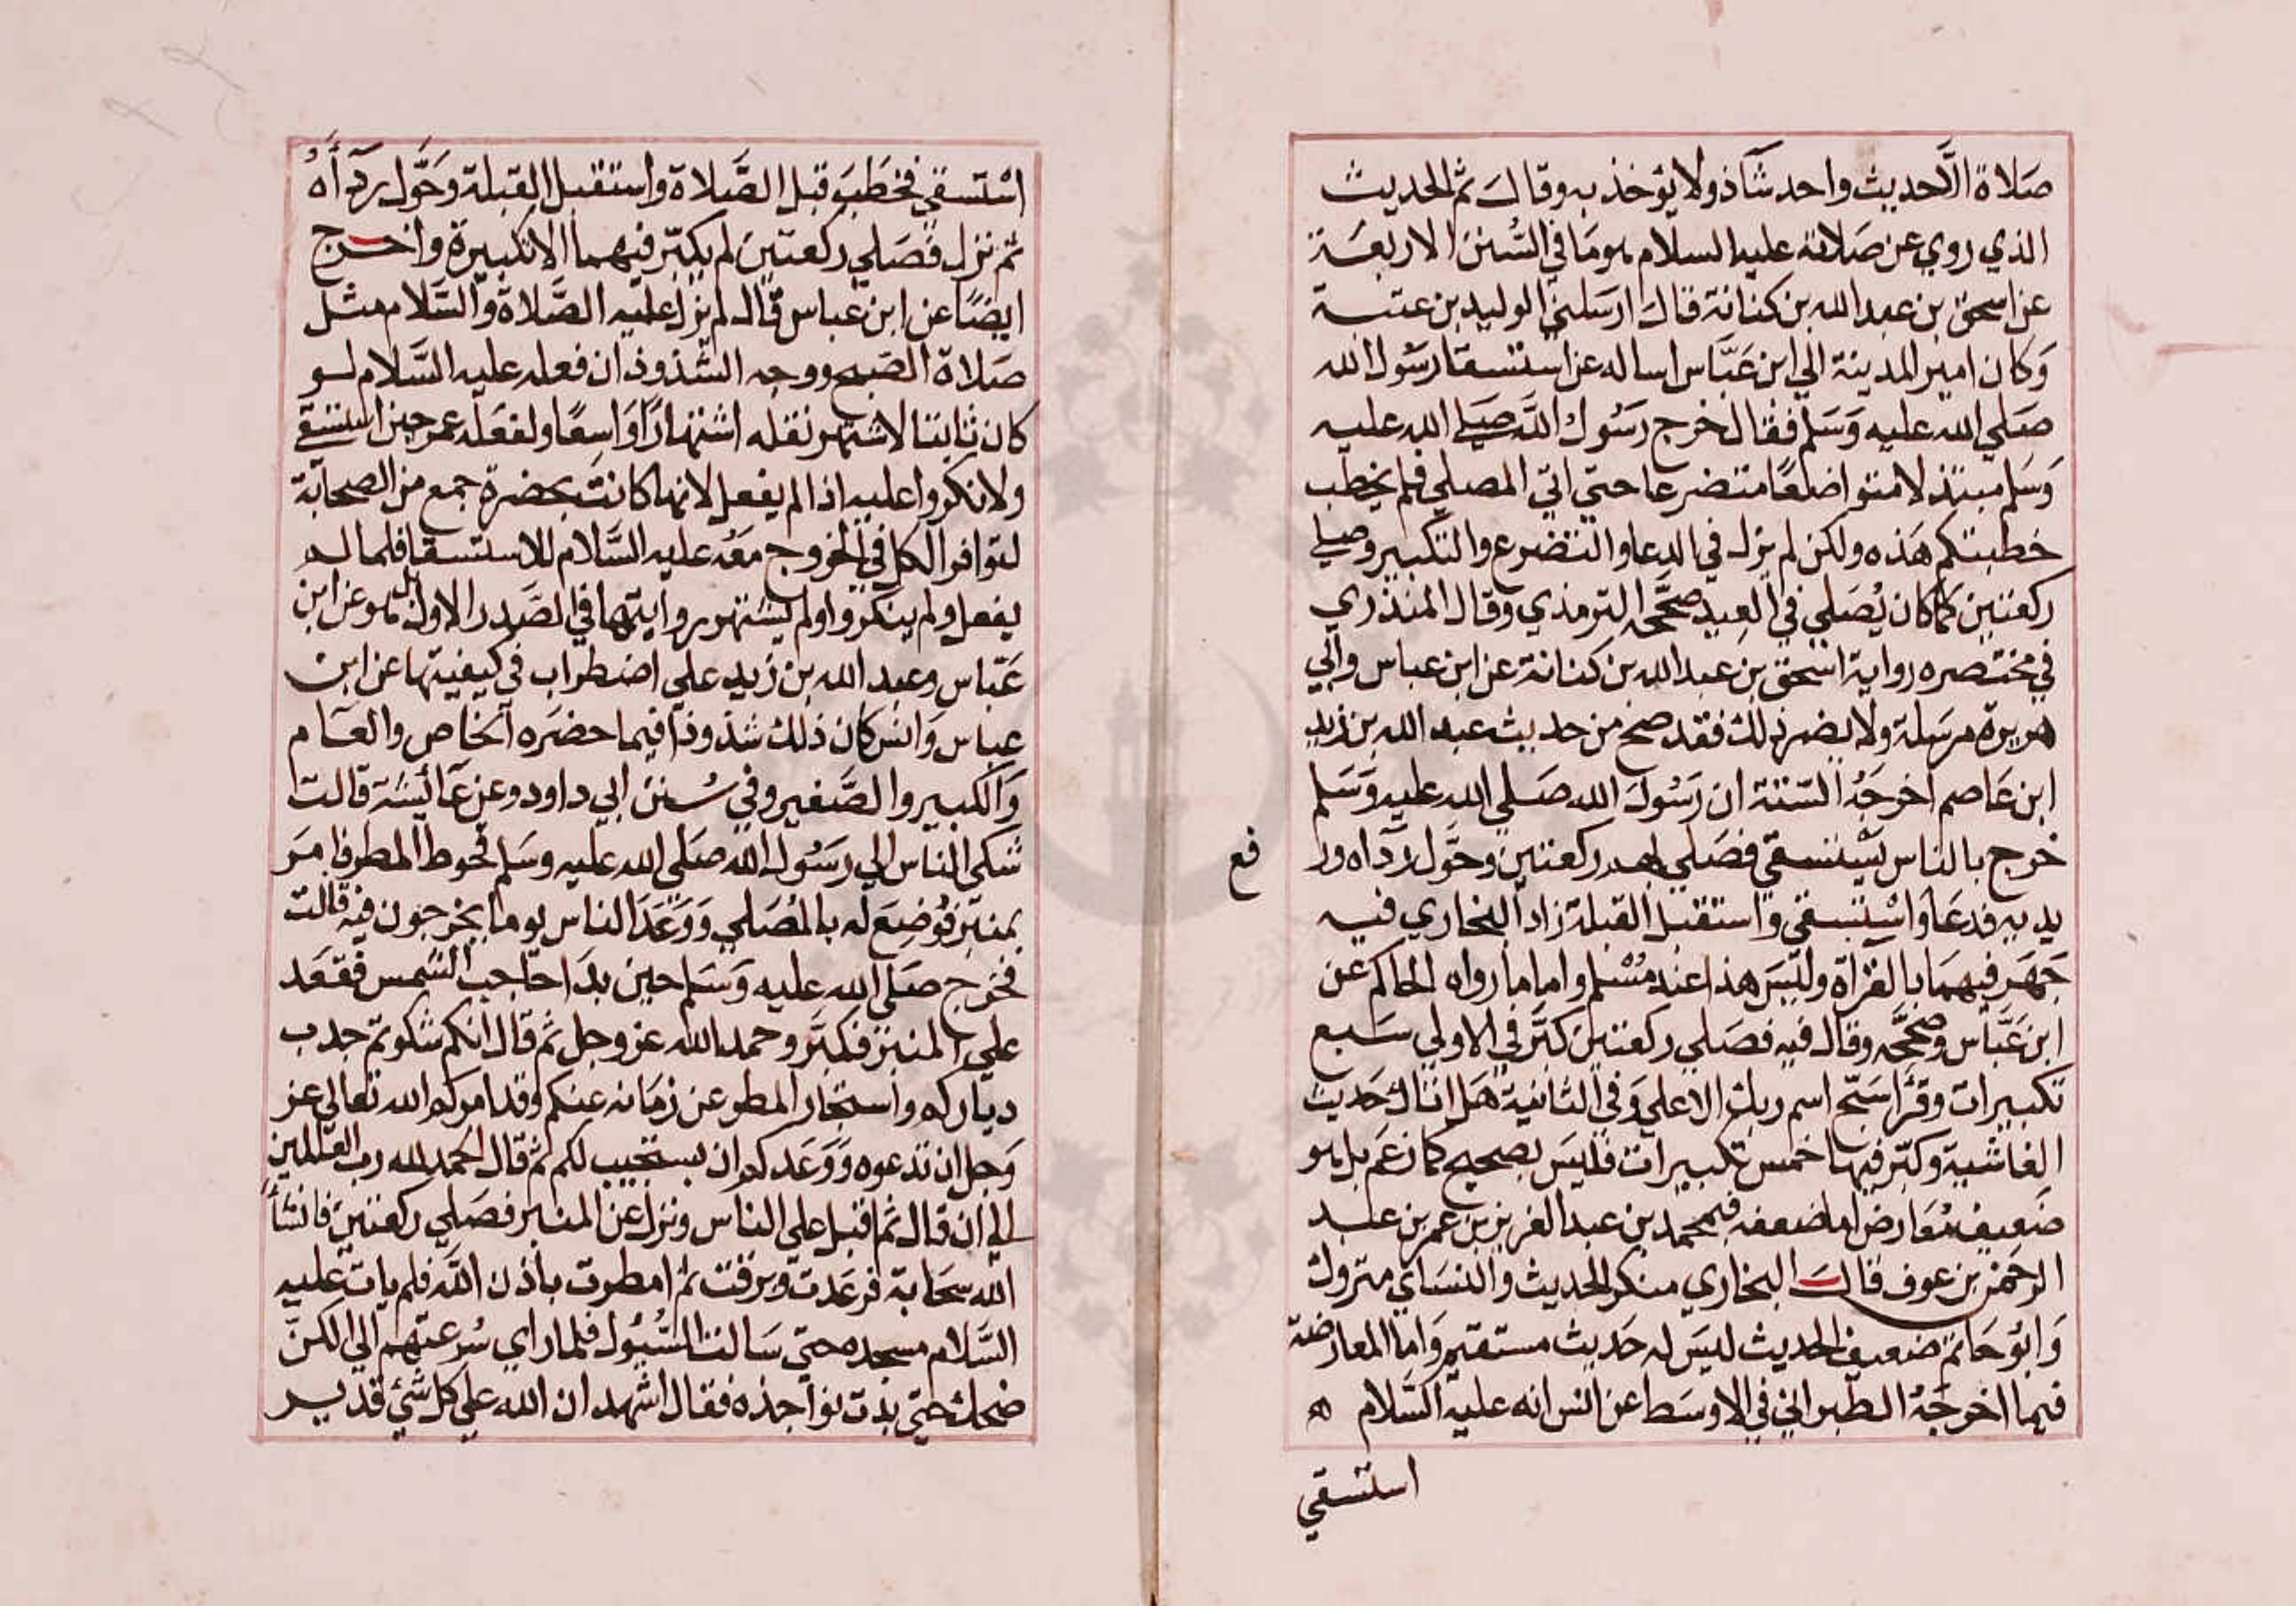 صَلاة الَّا حديث واحد شاذ ولا يؤخذ به وقالَ ثم الحديث
الذي روي عن صَلاته عليه السلام هو مَا في السُّنن الاربعَة
عن اسحق بن عبد الله بن كنانة قال ارسَلني الوليد بن عتبة
وَكان امير المدينة الي ابن عَبَّاس اساله عن استسقا رسُول الله
صَلي الله عليه وَسَلم فقال خرج رَسُول الله صَلي الله عليه
وَسَلم مبتذلا متواضعًا متضرعا حتى اتي المصلي فلم يخطب
خطبتكم هَذه ولكن لم يزل في الدعا والتضرع والتكبير وصلي
ركعتين كما كان يُصَلي في العيد صحَّحه الترمذي وقال المنذري
في مختصره رواية اسحق بن عبد الله بن كنانة عن ابن عباس وابي
هريرة مرسَلة ولا يضر ذلك فقد صح من حديث عبد الله بن زيد
ابن عَاصم اخرجَهُ الستة ان رَسُول الله صَلي الله عليه وَسَلم
خرج بالناس يَسْتسقي فصَلي بهم ركعتين وحَوَّل رداه ور
فع
يديه فدعَا وَاسْتسقي واستقبل القبلة زاد البخاري فيه
جَهَر فيهمَا بالقراة وليسَ هذا عند مسُلم واما ما رواه الحاكم عن
ابن عَبَّاس وصَحَّحه وقال فيه فصَلي ركعتين كبَّر في الاولي سَبع
تكبيرات وقرَا سَبّح اسم ربك الاعلي وَفي الثانية هَل اتاك حَديث
الغاشية وكبّر فيها خمس تكبيرات فليسَ بصحيح كما زعَم بل هو
ضَعيف مُعَارض اما ضعفه فبمحمد بن عبد العزيز بن عمر بن عبد
الرحمن بن عوف قالَ البخاري منكر الحديث والنسَاي متروك
وَابُو حَاتم ضعيف الحديث ليسَ له حَديث مستقيم وَاما المعارضة
فيما اخرجَهُ الطبراني في الاوسَط عن انس انه عليه السَّلام ه
استسقي
اسْتسقي فخطبَ قبل الصَّلاة واستقبل القبلة وحَوَّل ردآءَهُ
ثم نزل فصَلي ركعتين لم يكبّر فيهما الا تكبيرة واخرج
ايضًا عن ابن عباس قال لم يزل عليه الصَّلاة والسَّلام مثل
صَلاة الصبح ووجه الشذوذ ان فعله عليه السَّلام لو
كان ثابتا لاشتهر نقله اشتهارًا وَاسِعًا ولفعَله عمر حين استسقي
ولانكروا عليه اذا لم يفعل لانها كانت بحضرة جمع من الصحابة
لتوافر الكل في الخروج معَه عليه السَّلام للاستسقا فلما لم
يفعل ولم ينكروا ولم يشتهر روايتها في الصَّدر الاول بل هو عن ابن
عَبّاس وعبد الله بن زيد علي اضطراب في كيفيتها عن ابن
عباس وَانس كان ذلك شذوذا فيما حضرَه الخاص والعَام
وَالكبير والصَّغير وفي سُنن ابي داود وعن عَائشة قالت
شكي الناس الي رسَوُل الله صَلي الله عليه وسَلم قحوط المطر فامَر
بمنبَر فوُضِعَ له بالمُصَلي وَوَعَدَ الناس يوما يخرجون فيه قالت
فخرج صَلي الله عليه وَسَلم حين بدَا حاجب الشمس فقعَد
علي المنبر فكبَّر وحمد الله عز وجل ثم قال انكم شكوتم جدب
دياركم واستخار المطر عن زمَانه عنكم وقد امركم الله تعالي عز
وَجل ان تدعوه وَوَعَدكم ان يستجيب لكم ثم قال الحمد لله رب العالمين
الي ان قال ثم اقبل علي الناس ونزل عن المنبر فصَلي ركعتين فانشأَ
الله سحَابة فرعَدت وبرقت ثم امطرت باذن الله فلم يات عليه
السَّلام مسجده حتي سَالت السُّيُول فلما راي سُرعتهم الي الكنّ
ضحك حتي بدت نواجذه فقال اشهد ان الله علي كل شئ قدير